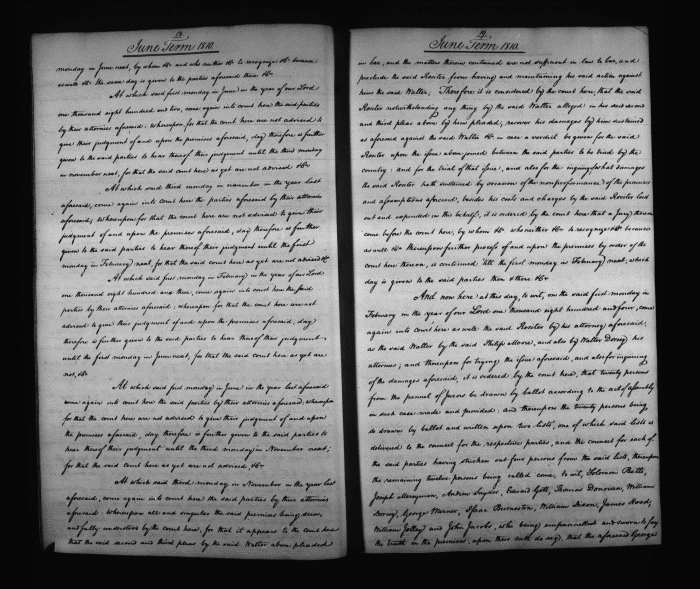 18
June Term 1810.
monday in June next, by whom &c and who neither &c to recognize &c because
as well &c the same day is given to the parties aforesaid there &c
At which said first monday in June in the year of our Lord
one thousand eight hundred and two, came again into court here the said parties
by their attornies aforesaid; whereupon for that the court here are not advised to
give their judgment of and upon the premises aforesaid, day therefore is further
given to the said parties to hear thereof their judgment until the third monday
in november next, for that the said court here as yet are not advised &c
At which said third monday in november in the year last
aforesaid, came again into court here the parties aforesaid by their attornies
aforesaid; Whereupon for that the court here are not advised to give their
judgment of and upon the premises aforesaid, day therefore is further
given to the said parties to hear thereof their judgment until the first
monday in February next, for that the said court here as yet are not advised &c
At which said first monday in February in the year of our Lord
one thousand eight hundred and three, came again into court here the said
parties by their attornies aforesaid; whereupon for that the court here are not
advised to give their judgment of and upon the premises aforesaid, day
therefore is further given to the said parties to hear thereof their judgment,
until the first monday in June next, for that the said court here as yet are
not, &c
At which said first monday in June in the year last aforesaid
came again into court here the said parties by their attornies aforesaid; whereupon
for that the court here are not advised to give their judgment of and upon
the premises aforesaid, day therefore is further given to the said parties to
hear thereof their judgment until the third monday in November next;
for that the said court here as yet are not advised, &c
At which said third monday in November in the year last
aforesaid, came again into court here the said parties by their attornies
aforesaid; whereupon all and singular the said premises being seen,
and fully understood by the court here, for that it appears to the court here
that the said second and third pleas by the said Walter above pleaded
19
June Term 1810.
in bar, and the matters therein contained are not sufficient in law to bar, and
preclude the said Rector from having and maintaining his said action against
him the said Walter; Therefore it is considered by the court here, that the said
Rector notwithstanding any thing by the said Walter alleged in his said second
and third pleas above by him pleaded, recover his damages by him sustained
as aforesaid against the said Walter &c in case a verdict be given for the said
Rector upon the issue above joined between the said parties to be tried by the
country; and for the trial of that issue, and also for the inquiry of what damages
the said Rector hath sustained by occasion of the nonperformance of the promises
and assumptions aforesaid, besides his costs and charges by the said Rector laid
out and expended in this behalf, it is ordered by the court here that a Jury thereon
come before the court here, by whom &c who neither &c to recognize &c because
as well &c thereupon further process of and upon the premises by order of the
court here thereon, is continued till the first monday in February next, which
day is given to the said parties then & there &c
And now here at this day, to wit, on the said first monday in
February in the year of our Lord one thousand eight hundred and four, come
again into court here as well the said Rector by his attorney aforesaid,
as the said Walter by the said Philip Moore, and also by Walter Dorsey his
attornies; and thereupon for trying the issue aforesaid, and also for inquiring
of the damages aforesaid, it is ordered by the court here, that twenty persons
from the pannel of Jurors be drawn by ballot according to the act of assembly
in such case made and provided; and thereupon the twenty persons being
so drawn by ballot and written upon two lists, one of which said lists is
delivered to the counsel for the respective parties, and the counsel for each of
the said parties having stricken out four persons from the said lists, thereupon
the remaining twelve persons being called come, to wit, Solomon Betts,
Joseph Merryman, Andrew Snyder, Edward Gott, Thomas Donovan, William
Dorsey, George Warner, Isaac Burneston, William Lorman, James Hood,
William Jolley and John Jacobs, who being empannelled and sworn to say
the truth in the premises, upon their oath do say, that the aforesaid George